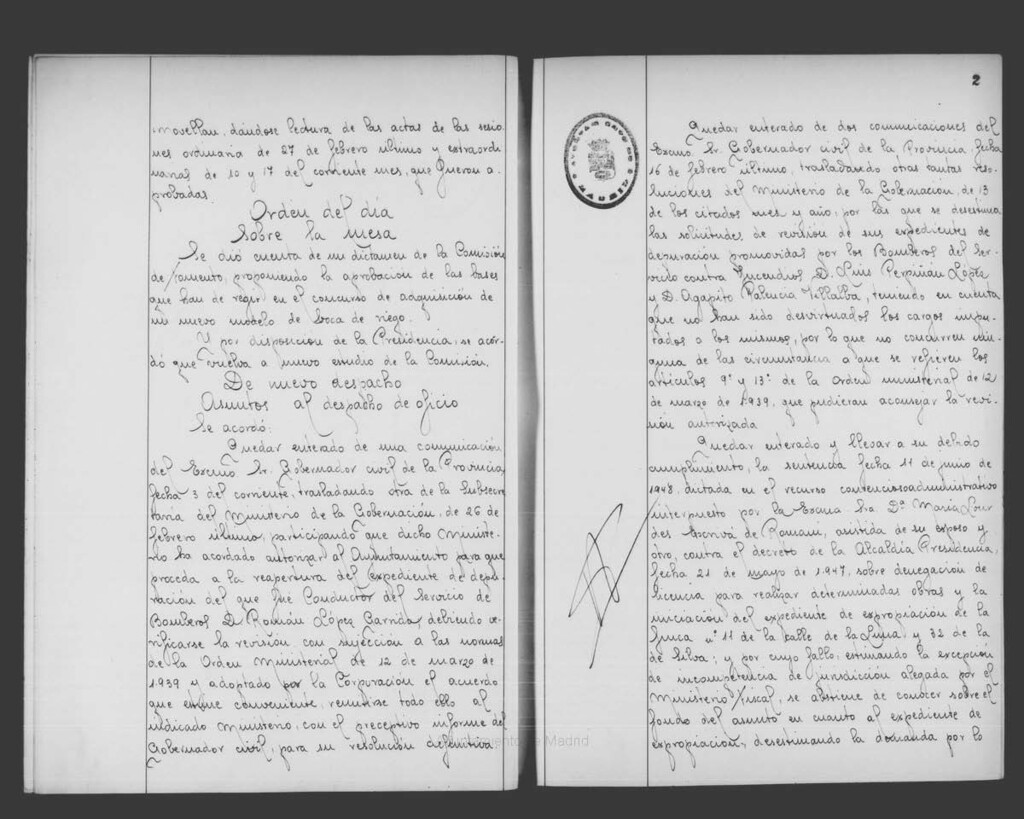 Movellan, dándose lectura de las actas de las sesio-
nes ordinaria de 27 de febrero último y extraordi-
narias de 10 y 17 del corriente mes, que fueron a-
probadas.
Orden del día
Sobre la mesa
Se dió cuenta de un dictamen de la Comisión
de Fomento, proponiendo la aprobación de las bases
que han de regir en el concurso de adquisición de
un nuevo modelo de boca de riego.
Y por disposición de la Presidencia, se acor-
dó que vuelva a nuevo estudio de la Comisión.
De nuevo despacho
Asuntos al despacho de oficio
Se acordó:
Quedar enterado de una comunicación
del Excmo. Sr. Gobernador civil de la Provincia,
fecha 3 del corriente, trasladando otra de la Subsecre-
taría del Ministerio de la Gobernación, de 26 de
febrero último, participando que dicho Ministe-
rio ha acordado autorizar al Ayuntamiento para que
proceda a la reapertura del expediente de depu-
ración del que fue Conductor del Servicio de
Bomberos D. Román López Garrido, debiendo ve-
rificarse la revisión con sujección a las normas
de la Orden Ministerial de 12 de marzo de
1.939 y adoptado por la Corporación el acuerdo
que estime conveniente, remitirse todo ello al
indicado Ministerio, con el preceptivo informe del
Gobernador civil, para su resolución definitiva.
2
Quedar enterado de dos comunicaciones del
Excmo. Sr. Gobernador civil de la Provincia, fecha
16 de febrero último, trasladando otras tantas reso-
luciones del Ministerio de la Gobernación, de 13
de los citados mes y año, por las que se desestima
las solicitudes de revisión de sus expedientes de
depuración promovidas por los Bomberos del Ser-
vicio contra Incendios D. Luis Perpiñán López
y D. Agapito Palencia Villalba, teniendo en cuenta
que no han sido desvirtuados los cargos impu-
tados a los mismos, por lo que no concurren nin-
guna de las circunstancia a que se refieren los
artículos 9º y 13º de la Orden ministerial de 12
de marzo de 1.939, que pudieran aconsejar la revi-
sión autorizada.
Quedar enterado y llevar a su debido
cumplimiento, la sentencia fecha 11 de junio de
1948, dictada en el recurso contenciosoadministrativo
interpuesto por la Excma. Sra. Dª María Lour-
des Escrivá de Romaní, asistida de su esposo y
otro, contra el decreto de la Alcaldía Presidencia,
fecha 21 de mayo de 1.947, sobre denegación de
licencia para realizar determinadas obras y la
iniciación del expediente de expropiación de la
finca nº 11 de la calle de la Luna y 32 de la
de Silva; y por cuyo fallo: estimando la excepción
de incompetencia de jurisdicción alegada por el
Ministerio Fiscal, se abstiene de conocer sobre el
fondo del asunto en cuanto al expediente de
expropiación, desestimando la demanda por lo
Ayuntamiento de Madrid